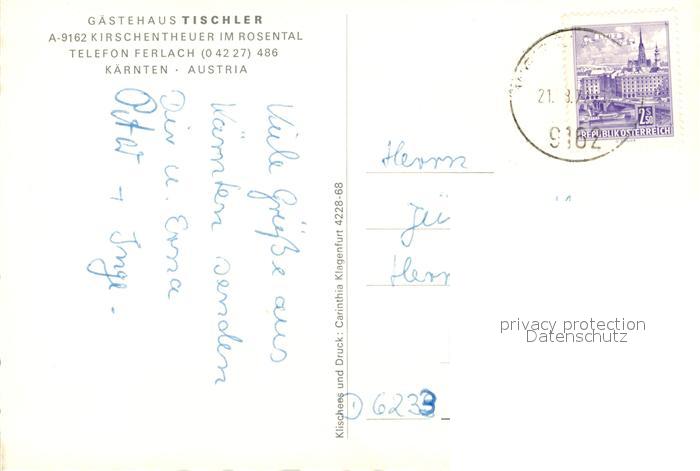 GÄSTEHAUS TISCHLER
A-9162 KIRSCHENTHEUER IM ROSENTAL
TELEFON FERLACH (0 42 27) 486
KÄRNTEN · AUSTRIA
Viele Grüße aus
Kärnten senden
Dir u. Erna
Peter + Inge.
Klischees und Druck: Carinthia Klagenfurt 4228-68
21. 8.
9162
2 S 50
REPUBLIK ÖSTERREICH
Herrn
Jü
Herr
D 6233
privacy protection
Datenschutz